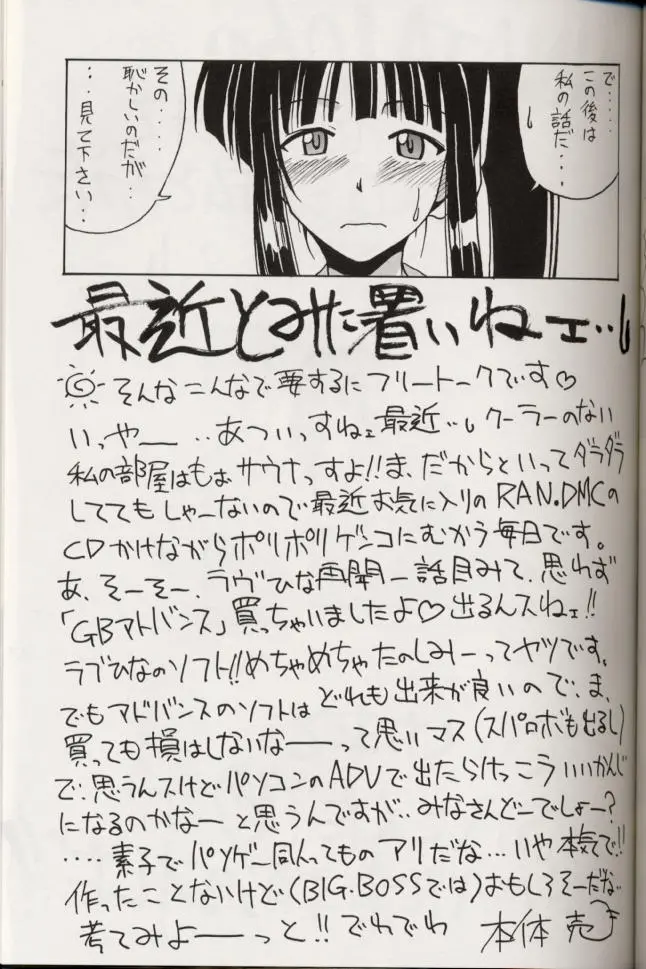 で‥‥
この後は
私の話だ‥‥
その‥‥
恥かしいのだが‥
‥見て下さい‥
最近とみに暑いねェ‥
そんなこんなで要するにフリートークです♡
いっやー‥あついっすねェ最近‥クーラーのない
私の部屋はもぉサウナっすよ!!ま、だからといってダラダラ
しててもしゃーないので最近お気に入りのRAN.DMCの
CDかけながらポリポリゲンコにむかう毎日です。
あ、そーそー、ラヴひな再開一話目みて、思わず
「GBアドバンス」買っちゃいましたよ♡出るんスねェ!!
ラブひなのソフト!!めちゃめちゃたのしみーってヤツです。
でもアドバンスのソフトはどれも出来が良いので、ま、
買っても損はしないなーーって思いマス(スパロボも出るし)
で、思うんスけどパソコンのADVで出たらけっこういいかんじ
になるのかなーと思うんですが‥みなさんどーでしょー?
‥‥素子でパソゲー同人ってものアリだな‥いや本気で!!
作ったことないけど(BIG.BOSSでは)おもしろそーだな
考てみよーーっと!!でわでわ 本体 売